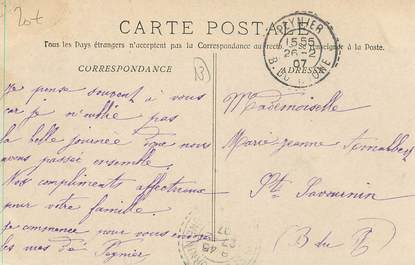 20t
CARTE POSTALE
Tous les Pays étrangers n'acceptent pas la Correspondance au recto. se renseigner à la Poste.
CORRESPONDANCE
ADRESSE
PEYNIER
26 - 2
07
B. DU RHONE
Je pense souvent à vous
car je n'oublie pas
la belle journée que nous
avons passée ensemble.
Nos compliments affectueux
pour votre famille.
Je commence pour vous envoyer
les vues de Peynier
Mademoiselle
Marie-Jeanne
Ste Savournin
(B du R)